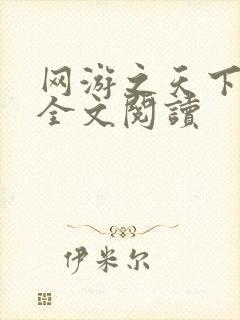 网游之天下
全文閱讀
伊米尔